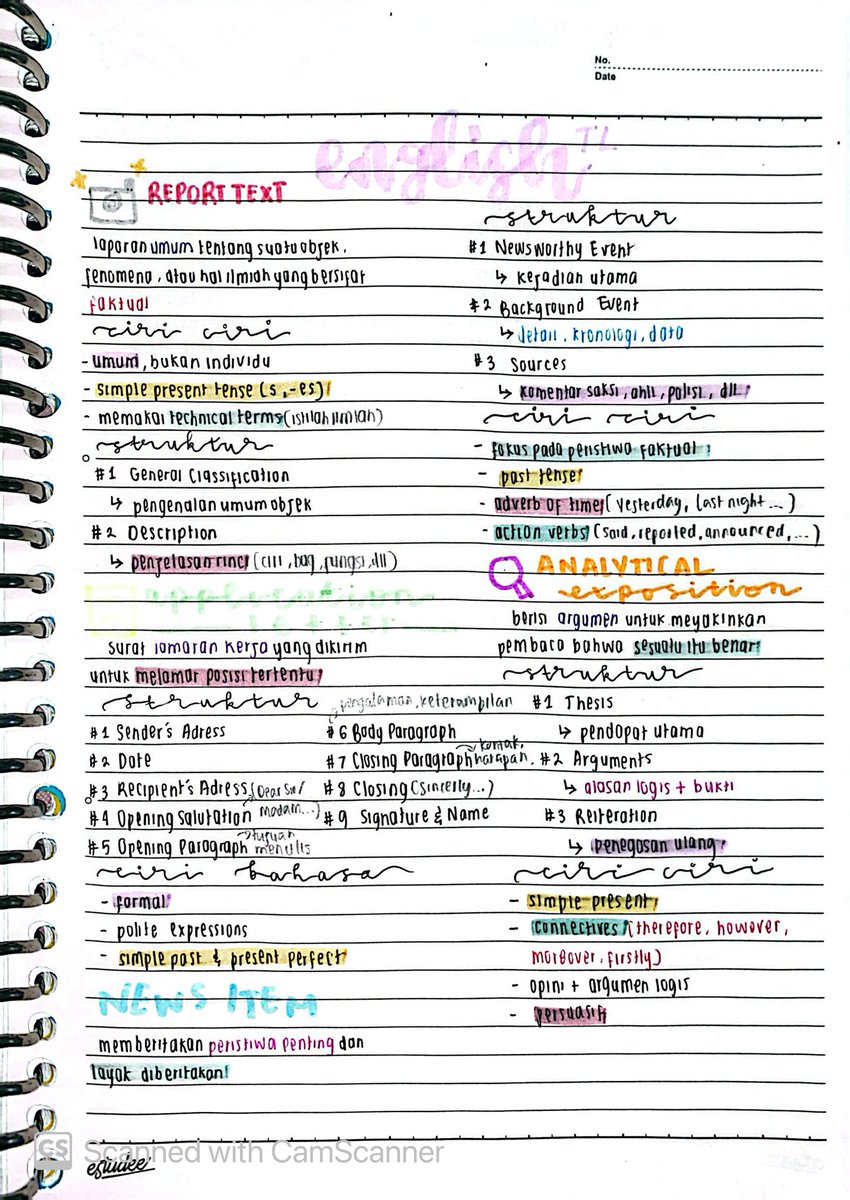 No.
Date
english TL
REPORT TEXT
laporan umum tentang suatu objek,
fenomena, atau hal ilmiah yang bersifat
faktual
ciri ciri
- umum, bukan individu
- simple present tense (s, -es)
- memakai technical terms (istilah ilmiah)
struktur
#1 General Classification
↳ pengenalan umum objek
#2 Description
↳ penjelasan rinci (ciri, bag, fungsi, dll)
application
letter
surat lamaran kerja yang dikirim
untuk melamar posisi tertentu
struktur
#1 Sender's Adress
#2 Date
#3 Recipient's Adress
#4 Opening Salutation (Dear Sir/Madam...)
#5 Opening Paragraph → tujuan menulis
pengalaman, keterampilan
#6 Body Paragraph
#7 Closing Paragraph → kontak, harapan.
#8 Closing (Sincerly...)
#9 Signature & Name
ciri bahasa
- formal
- polite expressions
- simple past & present perfect
NEWS ITEM
memberitakan peristiwa penting dan
layak diberitakan
struktur
#1 Newsworthy Event
↳ kejadian utama
#2 Background Event
↳ detail, kronologi, data
#3 Sources
↳ komentar saksi, ahli, polisi, dll
ciri ciri
- fokus pada peristiwa faktual
- past tense
- adverb of time (yesterday, last night...)
- action verbs (said, reported, announced,...)
ANALYTICAL
exposition
berisi argumen untuk meyakinkan
pembaca bahwa sesuatu itu benar
struktur
#1 Thesis
↳ pendapat utama
#2 Arguments
↳ alasan logis + bukti
#3 Reiteration
↳ penegasan ulang
ciri ciri
- simple present
- connectives (therefore, however,
moreover, firstly)
- opini + argumen logis
- persuasif
CS Scanned with CamScanner
estudee